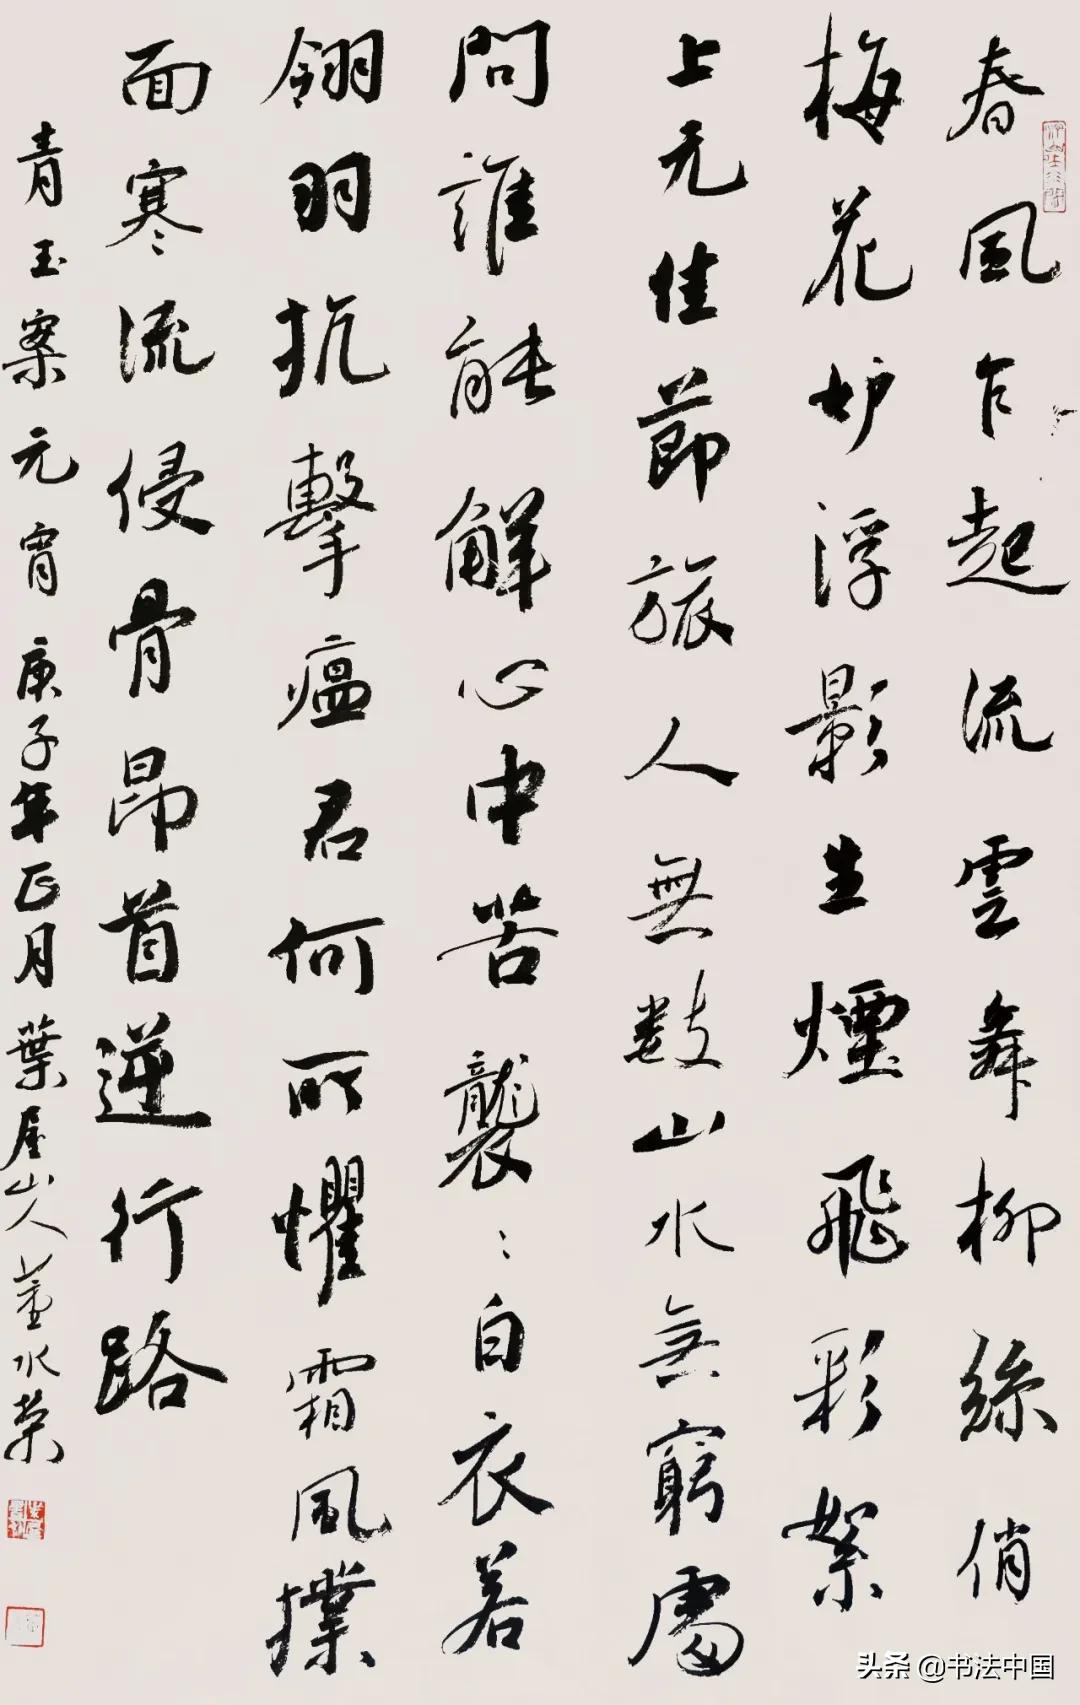 春風乍起流雲舞柳絲俏
梅花妒浮影生煙飛彩絮
上元佳節旅人無數山水無窮處
問誰能解心中苦襲〻白衣若
翎羽抗擊瘟君何所懼霜風撲
面寒〻流侵骨昂首逆行路
青玉案元宵庚子年正月葉屋山人董水荣
头条 @书法中国